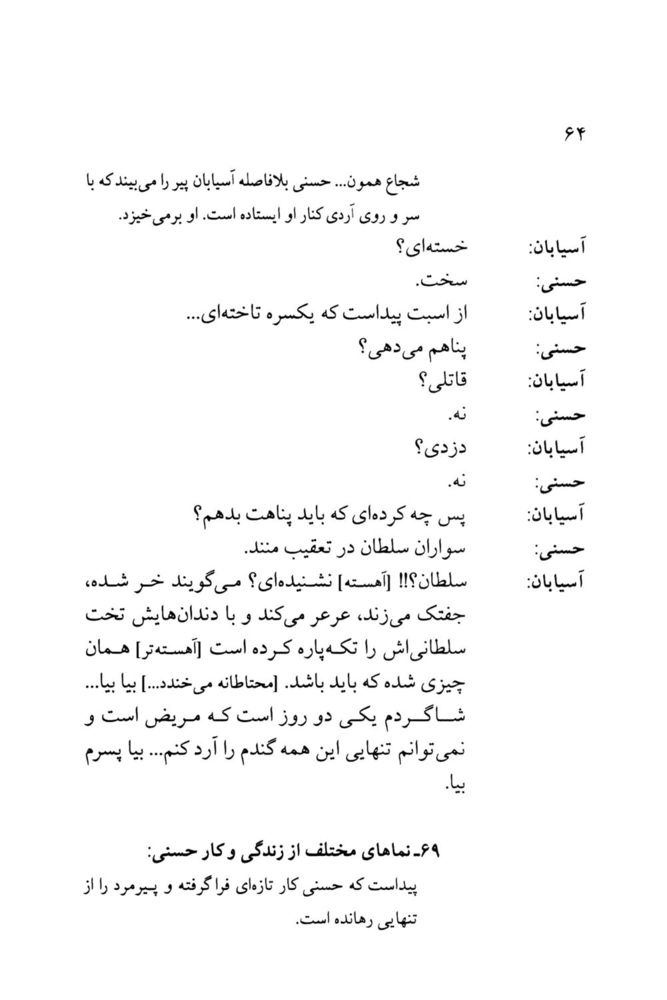 ۶۴
شجاع همون... حسنی بلافاصله آسیابان پیر را می‌بیند که با
سر و روی آردی کنار او ایستاده است. او برمی‌خیزد.
آسیابان: خسته‌ای؟
حسنی: سخت.
آسیابان: از اسبت پیداست که یکسره تاخته‌ای...
حسنی: پناهم می‌دهی؟
آسیابان: قاتلی؟
حسنی: نه.
آسیابان: دزدی؟
حسنی: نه.
آسیابان: پس چه کرده‌ای که باید پناهت بدهم؟
حسنی: سواران سلطان در تعقیب منند.
آسیابان: سلطان؟!! [آهسته] نشنیده‌ای؟ می‌گویند خر شده،
جفتک می‌زند، عرعر می‌کند و با دندان‌هایش تخت
سلطانی‌اش را تکه‌پاره کرده است [آهسته‌تر] همان
چیزی شده که باید باشد. [محتاطانه می‌خندد...] بیا بیا...
شاگردم یکی دو روز است که مریض است و
نمی‌توانم تنهایی این همه گندم را آرد کنم... بیا پسرم
بیا.
۶۹ـ نماهای مختلف از زندگی و کار حسنی:
پیداست که حسنی کار تازه‌ای فرا گرفته و پیرمرد را از
تنهایی رهانده است.